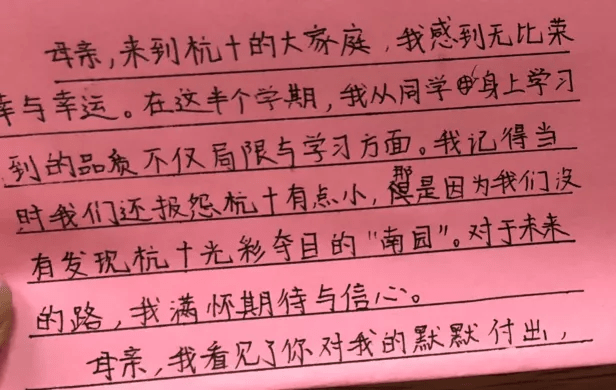 母亲，来到杭十的大家庭，我感到无比荣
幸与幸运。在这半个学期，我从同学身上学习
到的品质不仅局限与学习方面。我记得当
时我们还报怨杭十有点小，那是因为我们没
有发现杭十光彩夺目的“南园”。对于未来
的路，我满怀期待与信心。
母亲，我看见了你对我的默默付出，